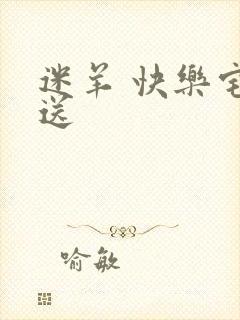 迷羊 快樂宅
送
喻敏